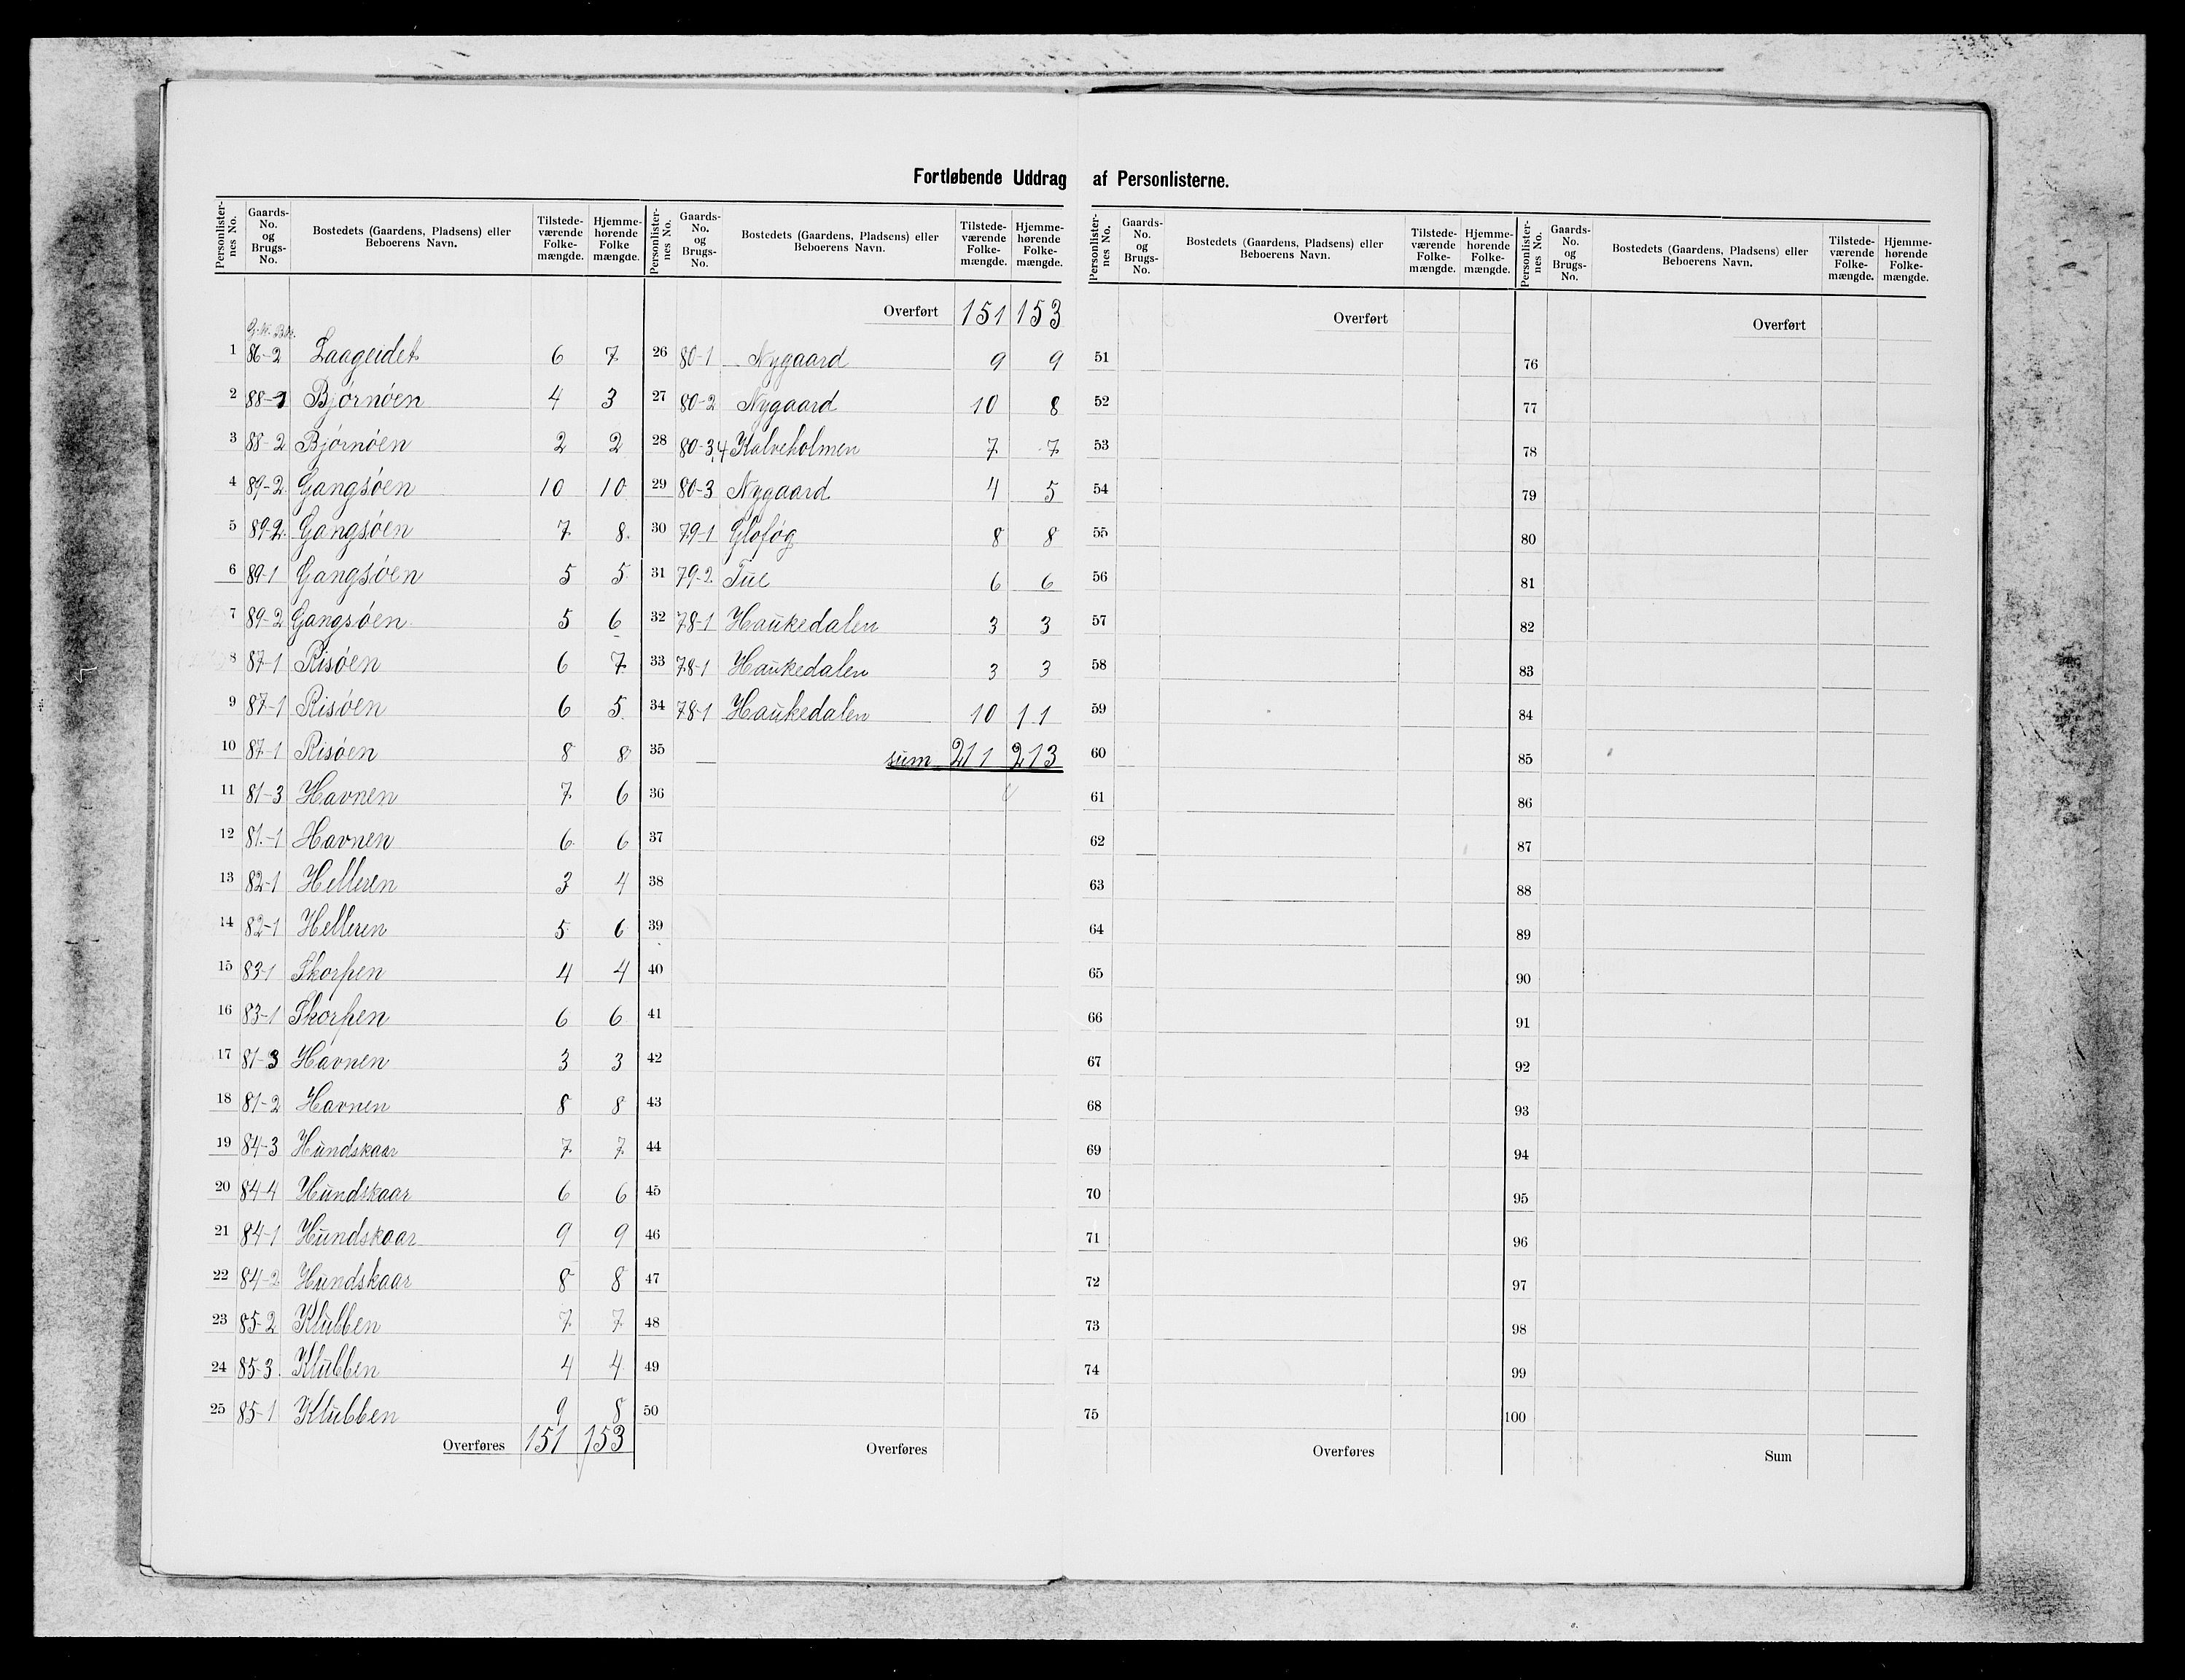 Fortløbende Uddrag af Personlisterne.
Personlister-nes No. Gaards-No. og Brugs-No. Bostedets (Gaardens, Pladsens) eller Beboerens Navn. Tilstede-værende Folke-mængde. Hjemme-hørende Folke mængde.
G.N. B.N.
1 86-2 Laageidet 6 7
2 88-1 Bjørnøen 4 3
3 88-2 Bjørnøen 2 2
4 89-2 Gangsøen 10 10
5 89-2. Gangsøen 7 8
6 89-1 Gangsøen 5 5
7 89-2 Gangsøen 5 6
8 87-1 Risøen 6 7
9 87-1 Risøen 6 5
10 87-1 Risøen 8 8
11 81-3 Havnen 7 6
12 81-1 Havnen 6 6
13 82-1 Helleren 3 4
14 82-1 Helleren 5 6
15 83-1 Skorpen 4 4
16 83-1 Skorpen 6 6
17 81-3 Havnen 3 3
18 81-2 Havnen 8 8
19 84-3 Hundskaar 7 7
20 84-4 Hundskaar 6 6
21 84-1 Hundskaar 9 9
22 84-2 Hundskaar 8 8
23 85-2 Klubben 7 7
24 85-3 Klubben 4 4
25 85-1 Klubben 9 8
Overføres 151 153
Personlister-nes No. Gaards-No. og Brugs-No. Bostedets (Gaardens, Pladsens) eller Beboerens Navn. Tilstede-værende Folke-mængde. Hjemme-hørende Folke-mængde.
Overført 151 153
26 80-1 Nygaard 9 9
27 80-2 Nygaard 10 8
28 80-3,4 Kalveholmen 7 7
29 80-3 Nygaard 4 5
30 79-1 Gloføg 8 8
31 79-2 Tue 6 6
32 78-1 Haukedalen 3 3
33 78-1 Haukedalen 3 3
34 78-1 Haukedalen 10 11
35 sum 211 213
36
37
38
39
40
41
42
43
44
45
46
47
48
49
50
Overføres
Personlister-nes No. Gaards-No. og Brugs-No. Bostedets (Gaardens, Pladsens) eller Beboerens Navn. Tilstede-værende Folke-mængde. Hjemme-hørende Folke-mængde.
Overført
51
52
53
54
55
56
57
58
59
60
61
62
63
64
65
66
67
68
69
70
71
72
73
74
75
Overføres
Personlister-nes No. Gaards-No. og Brugs-No. Bostedets (Gaardens, Pladsens) eller Beboerens Navn. Tilstede-værende Folke-mængde. Hjemme-hørende Folke-mængde.
Overført
76
77
78
79
80
81
82
83
84
85
86
87
88
89
90
91
92
93
94
95
96
97
98
99
100
Sum